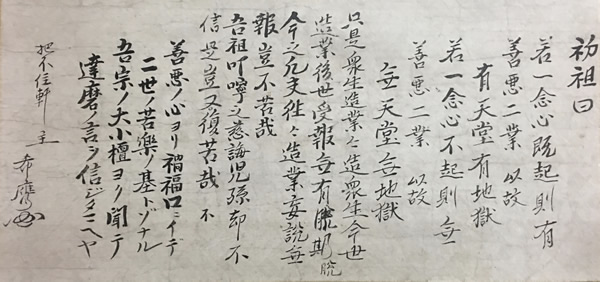 初祖曰
若一念心既起則有
善悪二業 以故
有天堂有地獄
若一念心不起則無
善悪二業 以故
無天堂無地獄
只是衆生造業々造衆生今世
造業後世受報無有脱期
今之凡夫往々造業妄説無
報豈不苦哉
吾祖叮嚀之慈誨児孫却不
信是豈又復苦哉 不
善悪ノ心ヨリ禍福ロニイデ
二世ノ苦樂ノ基トゾナル
吾宗ノ大小檀ヨク聞テ
達磨ノ言ヲ信ジタマヘヤ
把不住軒 主